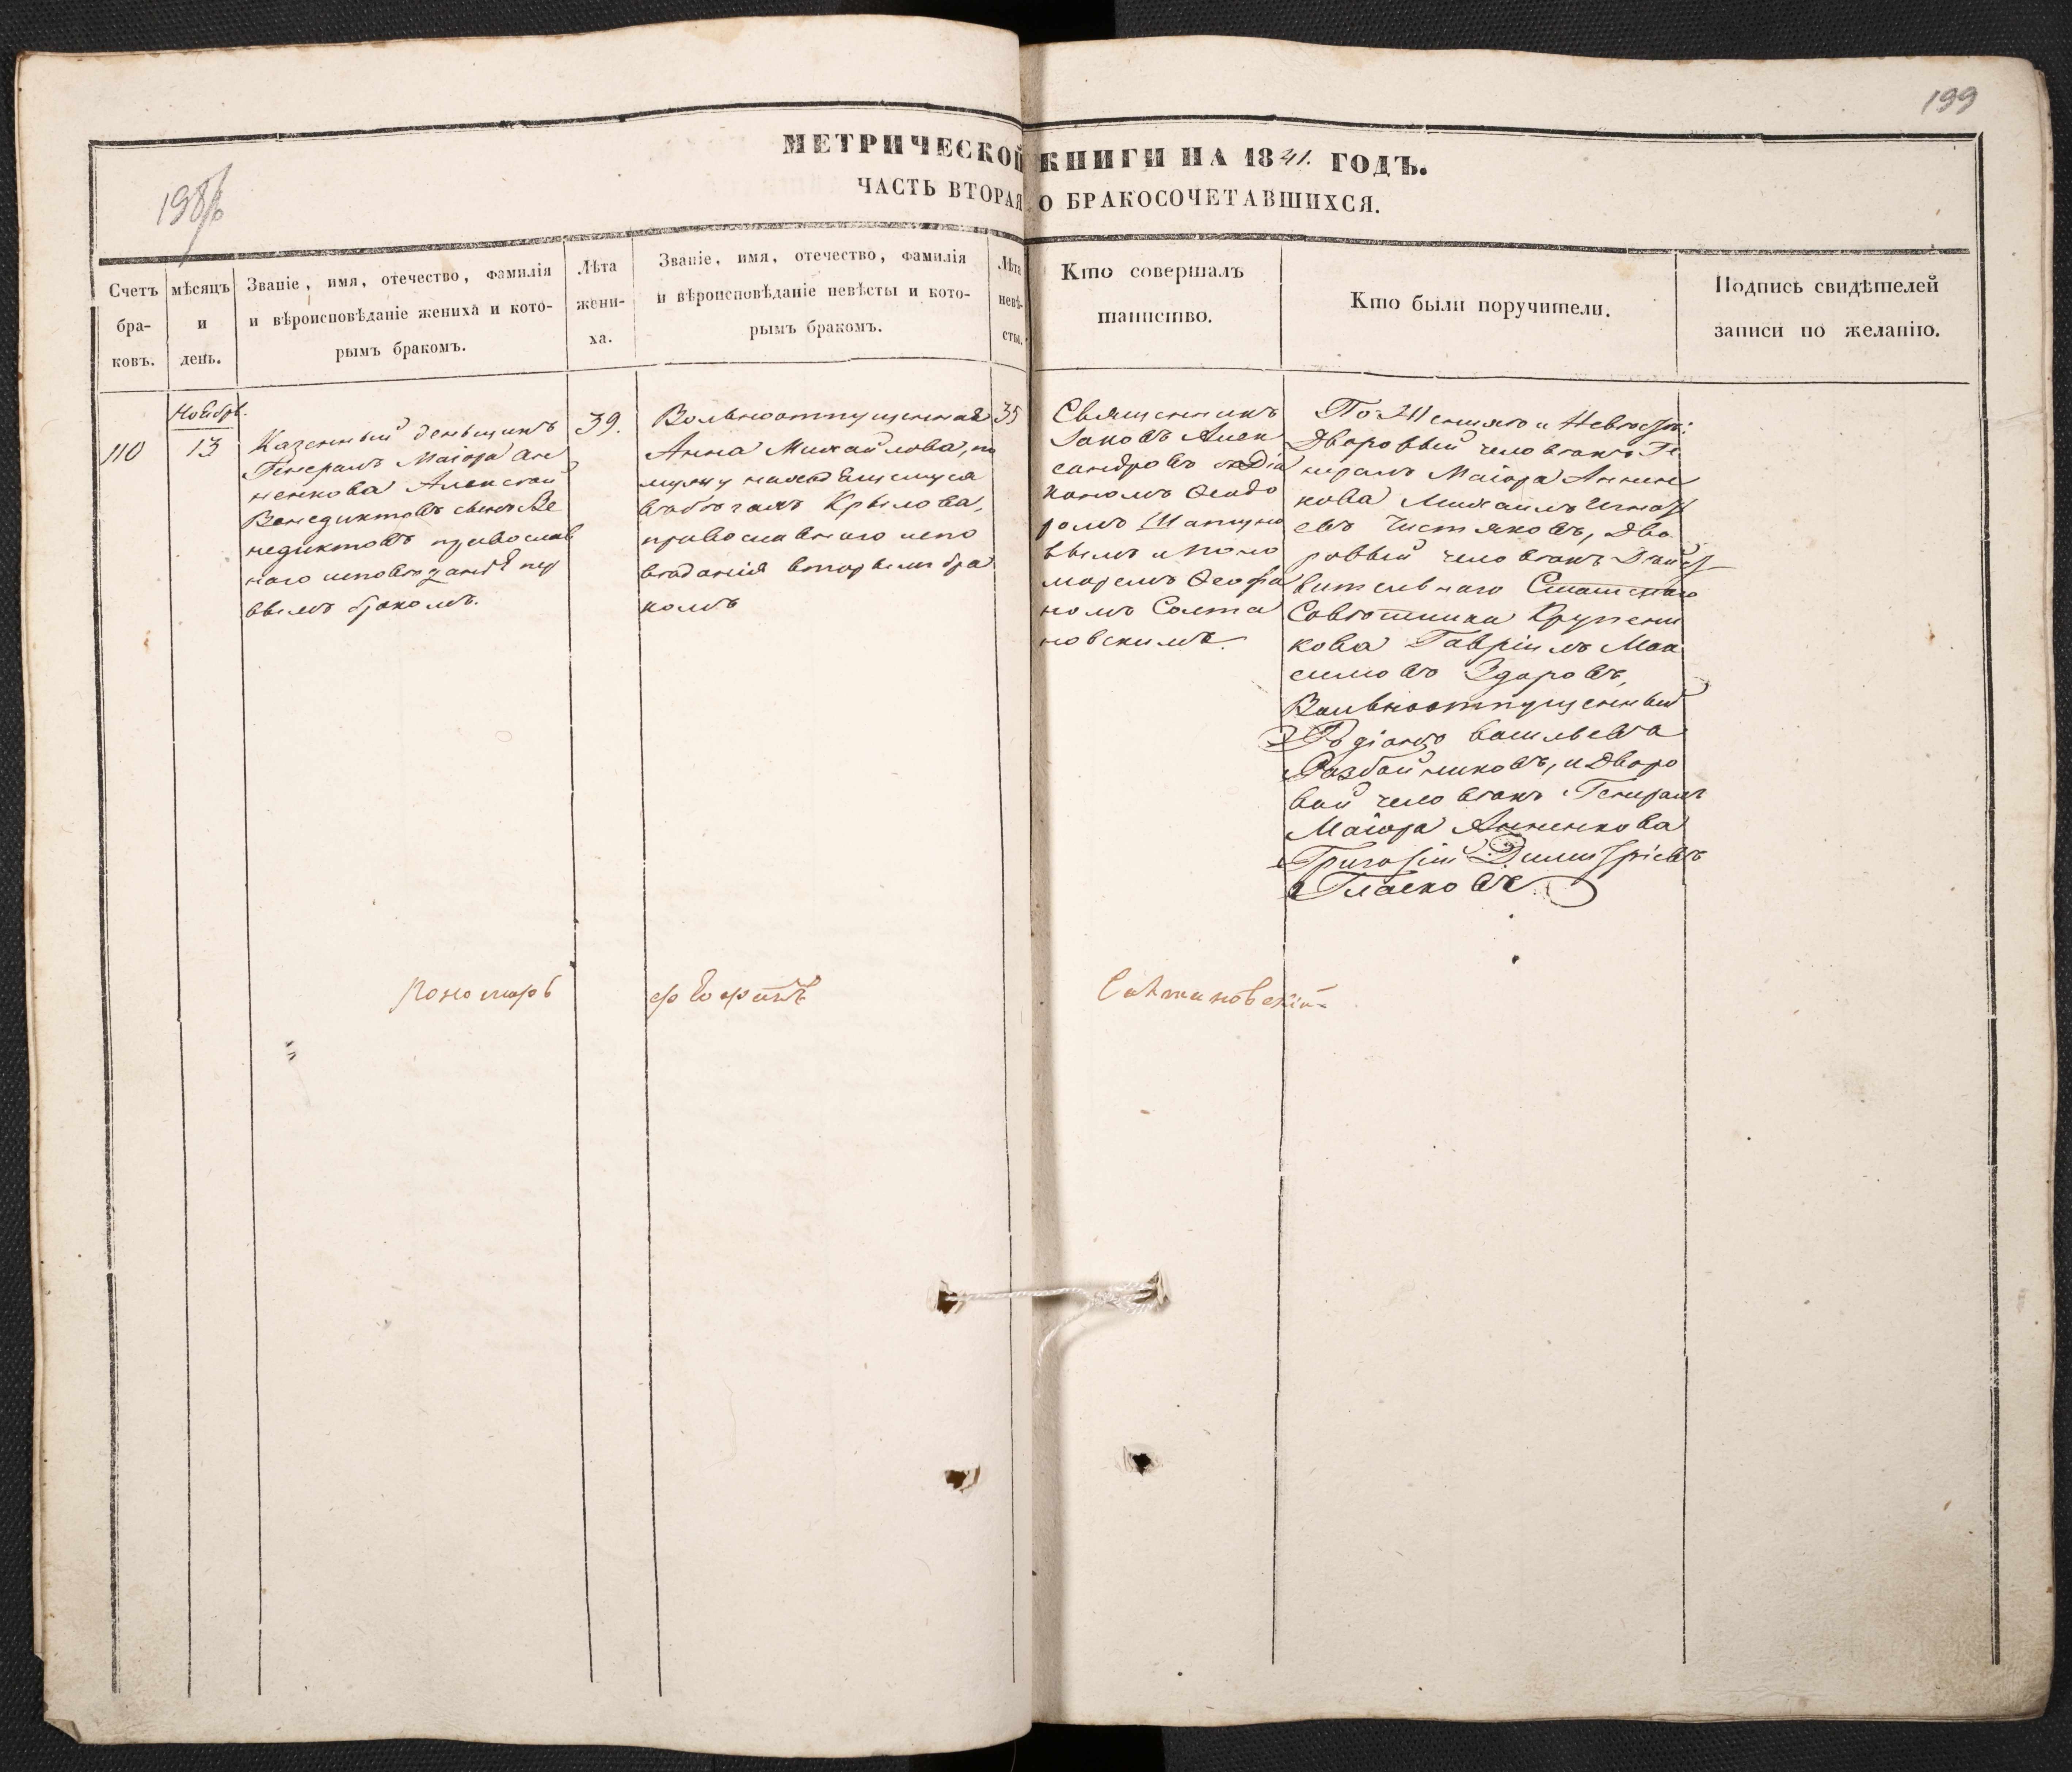 199
198
МЕТРИЧЕСКОЙ КНИГИ НА 1841. ГОДЪ.
ЧАСТЬ ВТОРАЯ О БРАКОСОЧЕТАВШИХСЯ.
Счетъ
бра-
ковъ.
мѣсяцъ
и
день.
Званіе, имя, отечество, фамилія
и вѣроисповѣданіе жениха и кото-
рымъ бракомъ.
Лѣта
жени-
ха.
Званіе, имя, отечество, фамилія
и вѣроисповѣданіе невѣсты и кото-
рымъ бракомъ.
Лѣта
невѣ-
сты.
Кто совершалъ
таинство.
Кто были поручители.
Подпись свидѣтелей
записи по желанію.
110
Ноябрь.
13
Казенный деньщикъ
Генералъ Маіора Ан
ненкова Алексѣй
Венедиктовъ сынъ Ве
недиктовъ православ
наго исповѣданія пер
вымъ бракомъ.
39.
Вольноотпущенная
Анна Михайлова, по
мужу находящемуся
въ бѣгахъ Крылова,
православнаго испо
вѣданія вторымъ бра
комъ
35
Священникъ
Іаковъ Алек
сандровъ съ Діа
кономъ Ѳеодо
ромъ
и поно
маремъ Ѳеофа
номъ Салта
новскимъ.
По Женихѣ и Невѣстѣ:
Дворовый человѣкъ Ге
нералъ Маіора Аннен
кова Михаилъ Игнать
евъ Чистяковъ, Дво
ровый человѣкъ Дѣйст
вительнаго Статскаго
Совѣтника Крупени
кова Гавріилъ Мак
симовъ Здоровъ,
Вольноотпущенный
Родіонъ Васильевъ
Разбойниковъ, и Дворо
вой человѣкъ Генералъ
Маіора Анненкова
Григорій Димитріевъ
Гласковъ
Пономарь Ѳеофанъ Салтановскій